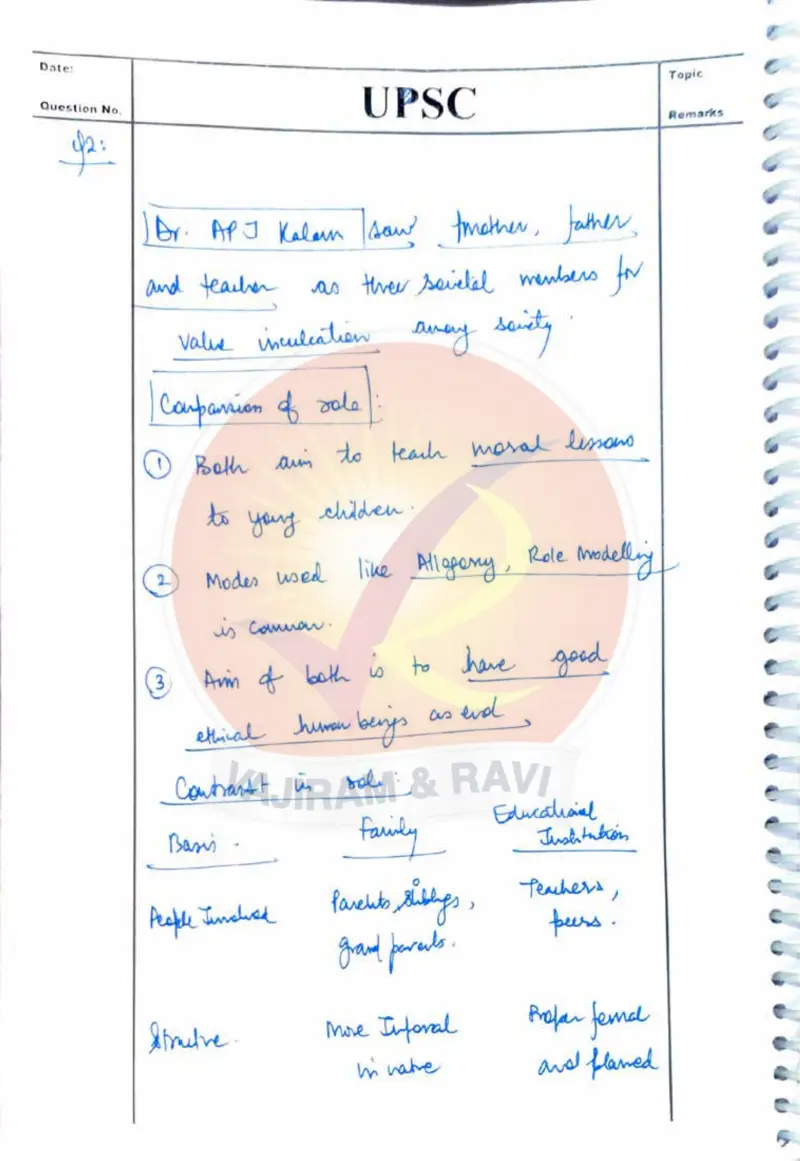 Date:
Question No.
UPSC
Topic
Remarks
Q2:
Dr. APJ Kalam saw mother, father,
and teacher as three societal members for
value inculcation among society.
Comparsion of role:
① Both aim to teach moral lessons
to young children.
② Modes used like Allegory, Role Modelling
is common.
③ Aim of both is to have good
ethical human beings as end,
Contrast in role:
VAJIRAM & RAVI
Basis. Family Educational
Institution
People Involved Parents, siblings, Teachers,
grand parents. peers.
Structure. More Informal Proper formal
in nature and planned